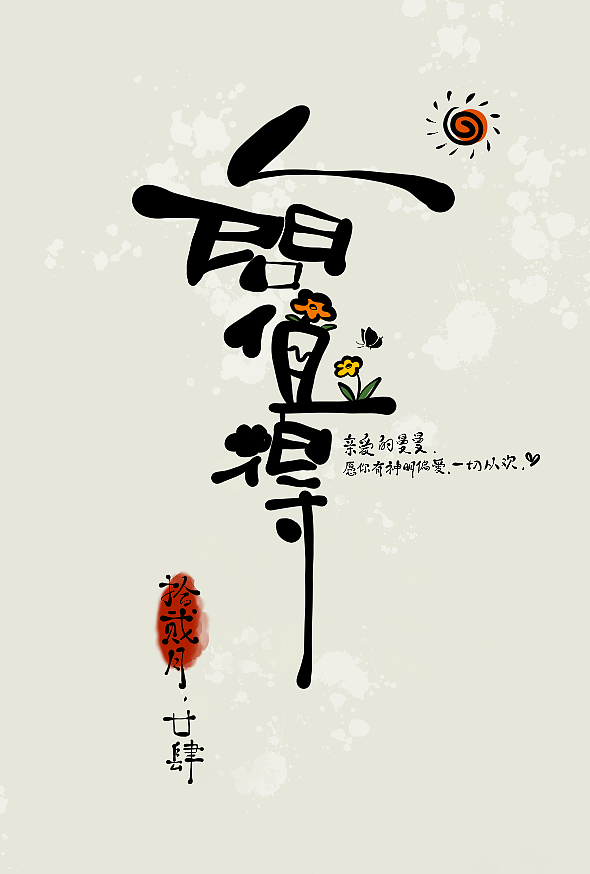 人间值得
亲爱的曼曼.
愿你有神明偏爱,一切从欢.
拾贰月·廿肆